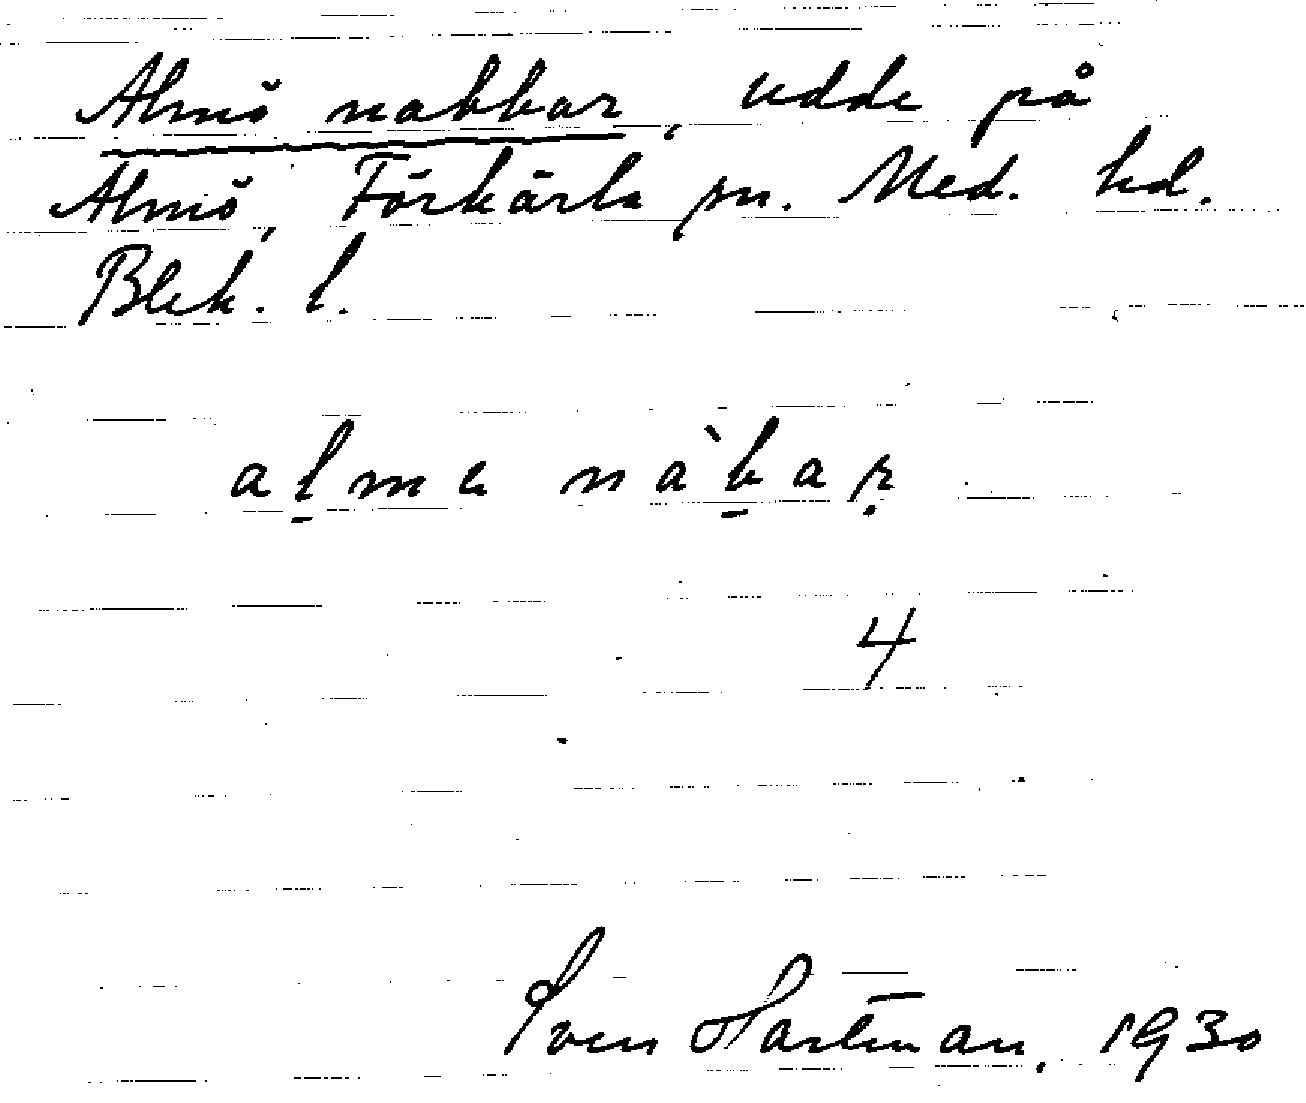 Almö nabbar, udde på
Almö, Förkärla sn. Med. hd.
Blek. l.
a̱lme nàḇaṛ
4
Sven Hartman, 1930